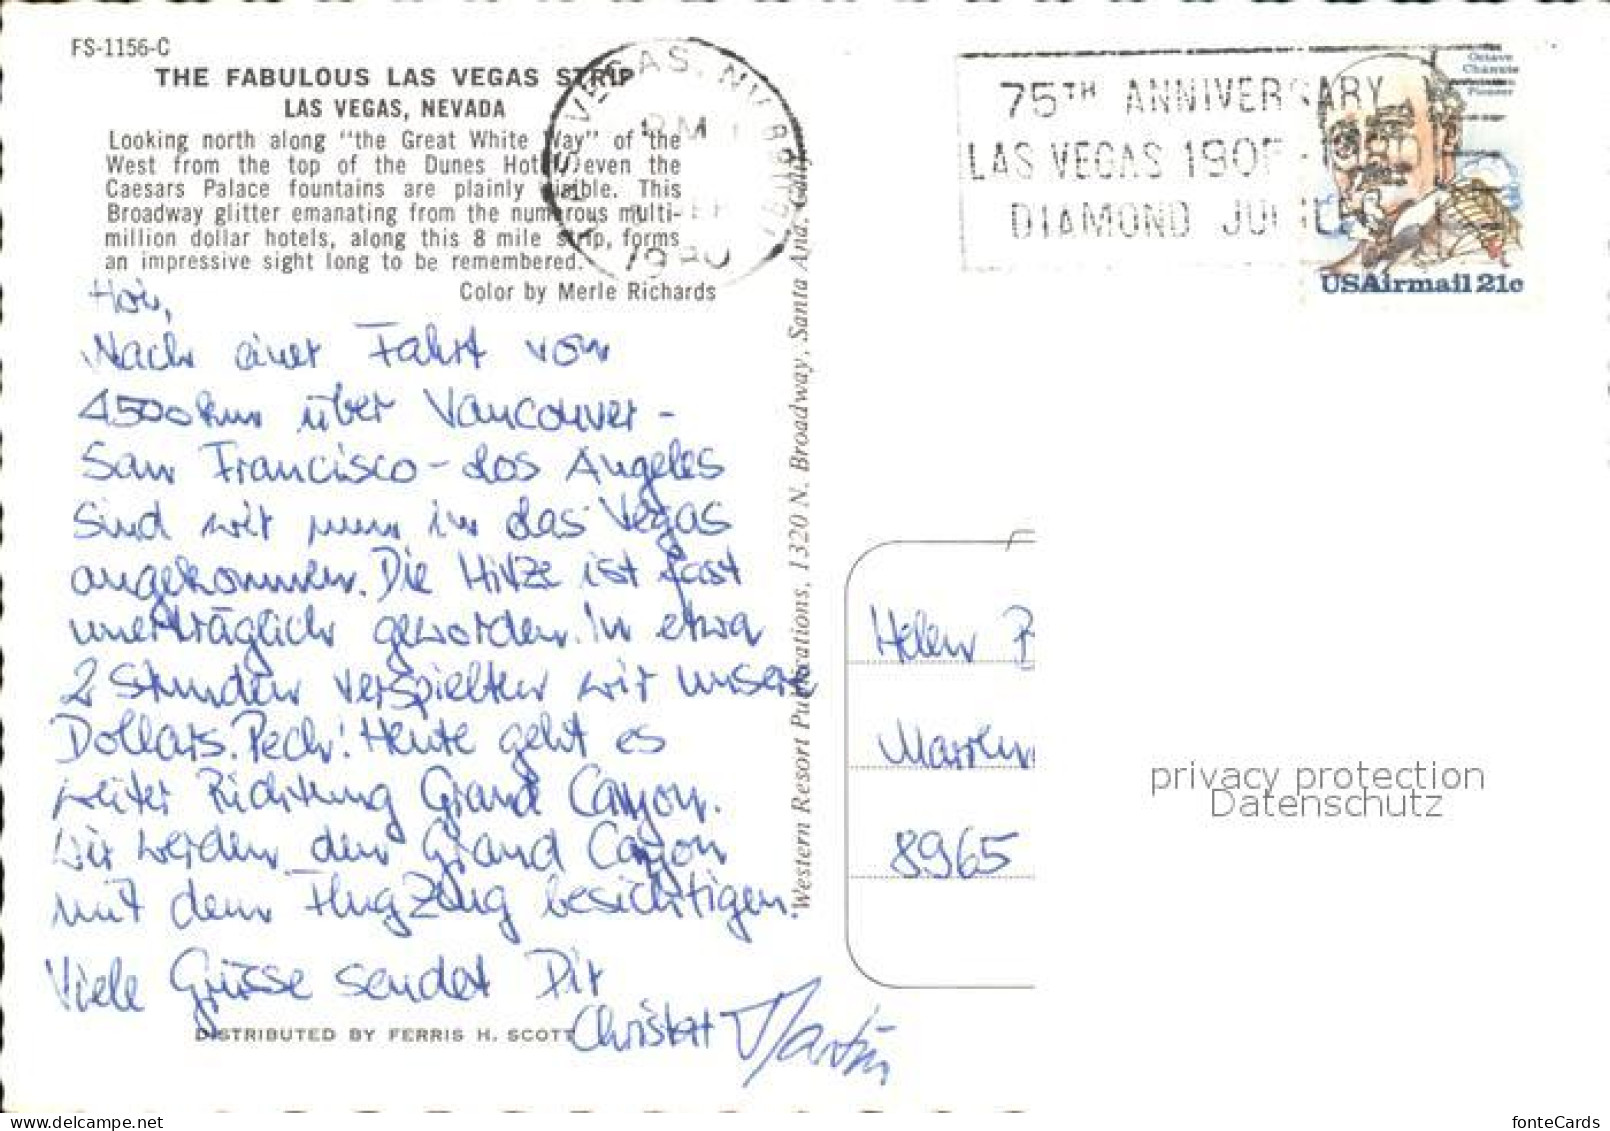 FS-1156-C
THE FABULOUS LAS VEGAS STRIP
LAS VEGAS, NEVADA
Looking north along "the Great White Way" of the
West from the top of the Dunes Hotel, even the
Caesars Palace fountains are plainly visible. This
Broadway glitter emanating from the numerous multi-
million dollar hotels, along this 8 mile strip, forms
an impressive sight long to be remembered.
Color by Merle Richards
Hoi,
Nach einer Fahrt von
4500 km über Vancouver -
San Francisco - Los Angeles
sind wir nun in Las Vegas
angekommen. Die Hitze ist fast
unerträglich geworden. In etwa
2 Stunden verspielten wir unsere
Dollars. Pech! Heute geht es
weiter Richtung Grand Canyon.
Wir werden den Grand Canyon
mit dem Flugzeug besichtigen.
Viele Grüsse sendet Dir
Martin
DISTRIBUTED BY FERRIS H. SCOTT
Western Resort Publications, 1320 N. Broadway, Santa Ana, Calif.
VEGAS, NV
PM
1980
75TH ANNIVERSARY
LAS VEGAS 1905 -
DIAMOND JUBILEE
Octave
Chanute
Aviation
Pioneer
USAirmail 21c
8965
privacy protection
Datenschutz
www.delcampe.net
fonteCards